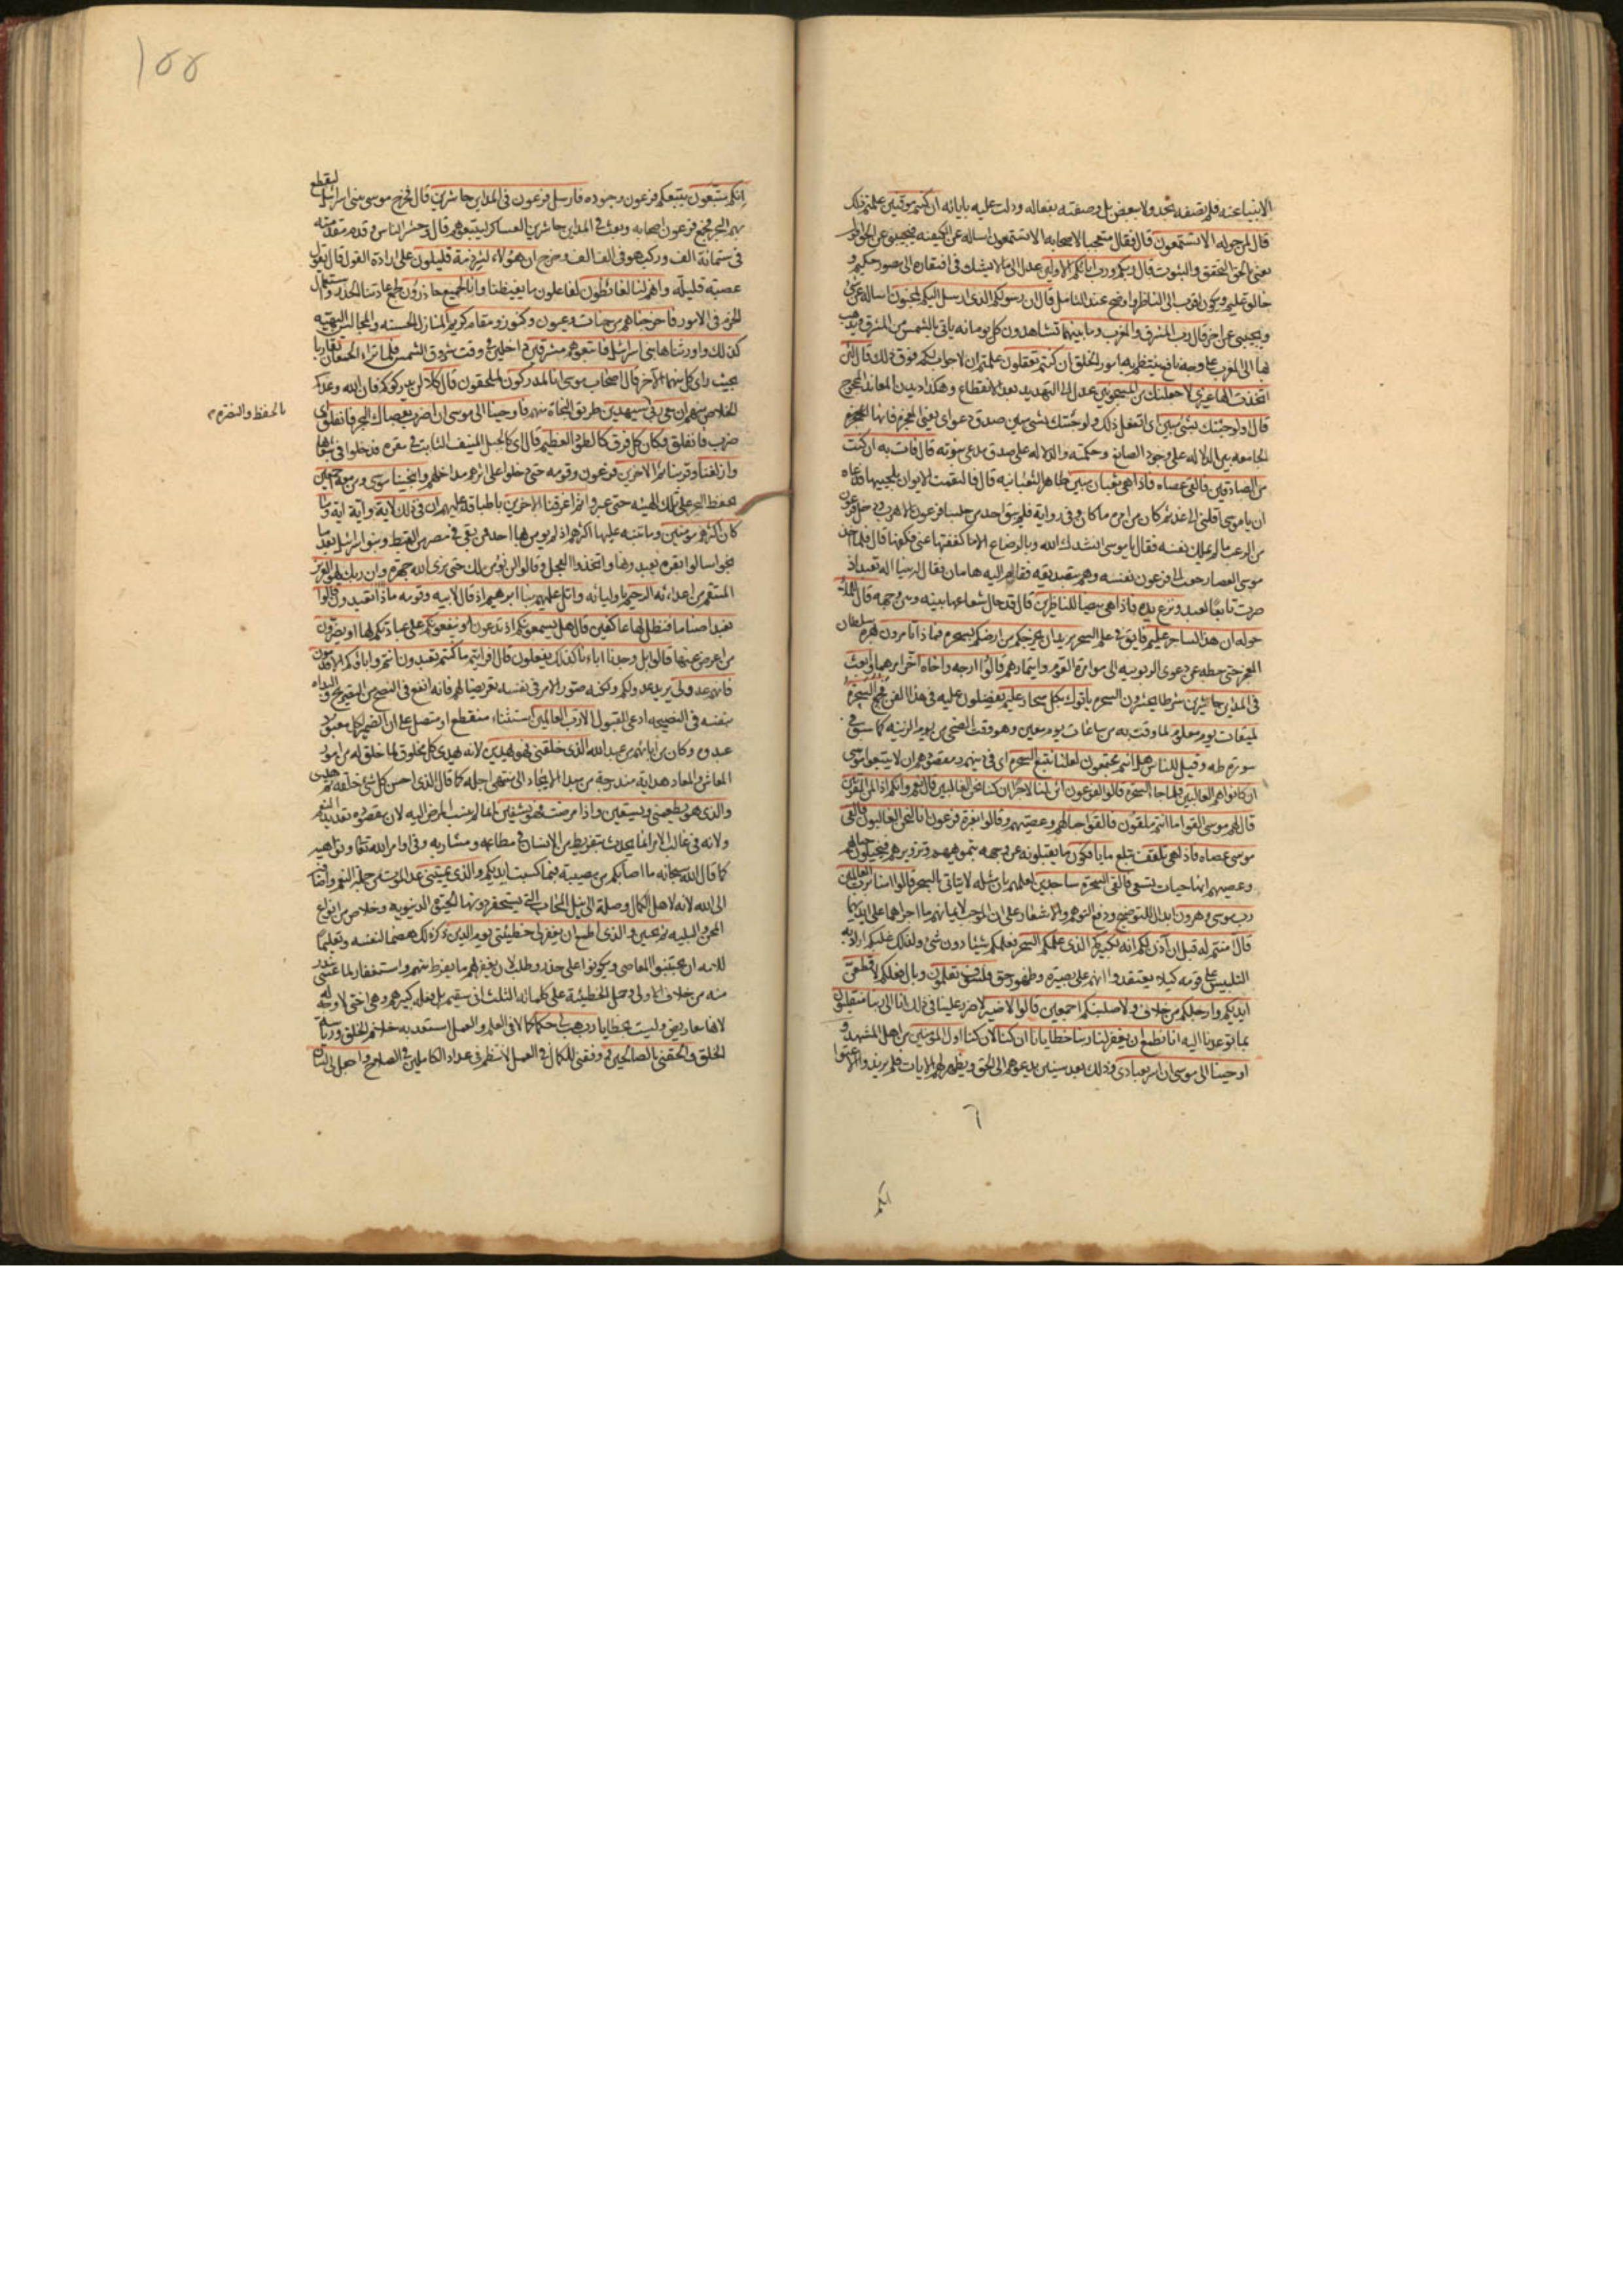 الانبياء عنه فلم تصفه بحد ولا ببعض بل وصفته بفعاله ودلت عليه باياته ان كنتم موقنين علمتم ذلك
قال لمن حوله الا تستمعون قال فقال متعجبا لاصحابه الا تستمعون اساله عن الكيفية فيجيبني عن الخلق
يعني بالحق التحقق والثبوت قال ربكم ورب ابائكم الاولين عدل الى ما لا يشك في افتقاره الى مصور حكيم و
خالق عليم ويكون اقرب الى الناظر واوضح عند التامل قال ان رسولكم الذي ارسل اليكم لمجنون اساله عن شئ
ويجيبني عن اخر قال رب المشرق والمغرب وما بينهما تشاهدون كل يوم انه ياتي بالشمس من المشرق ويذهب
بها الى المغرب على وجه نافع ينتظم به امور الخلق ان كنتم تعقلون علمتم ان لا جواب لكم فوق ذلك قال لئن
اتخذت الها غيري لاجعلنك من المسجونين عدل الى التهديد بعد الانقطاع وهكذا ديدن المعاند المحجوج
قال اولو جئتك بشئ مبين اي اتفعل ذلك ولو جئتك بشئ مبين صدق دعواي يعني المعجزة فانها
الجامعة بين الدلالة على وجود الصانع وحكمته والدلالة على صدق مدعي نبوته قال فات به ان كنت
من الصادقين فالقى عصاه فاذا هي ثعبان مبين ظاهر الثعبانية قال فالتقمت الايوان بلحييها فدعاه
ان يا موسى اقلني الى غد ثم كان من امره ما كان وفي رواية فلم يبق احد من جلساء فرعون الا هرب ودخل فرعون
من الرعب ما لم يملك نفسه فقال يا موسى انشدك الله وبالرضاع الا ما كففتها عني فكفها قال فلما اخذ
موسى العصا رجعت الى فرعون نفسه وهم بتصديقه فقام اليه هامان فقال له بينا اله تعبد اذ
صرت تابعا لعبد ونزع يده فاذا هي بيضاء للناظرين قال قد حال شعاعها بينه وبين وجهه قال للملاء
حوله ان هذا لساحر عليم فايق في علم السحر يريد ان يخرجكم من ارضكم بسحره فماذا تامرون بهره سلطان
المعجز حتى حطه عن دعوى الربوبية الى موامرة القوم وايتمارهم قالوا ارجه واخاه اخر امرهما وابعث
في المداين حاشرين شرطا يحشرون السحرة ياتوك بكل سحار عليم يفضلون عليه في هذا الفن فجمع السحرة
لميقات يوم معلوم لما وقت به من ساعات يوم معين وهو وقت الضحى من يوم الزينة كما سبق في
سورة طه وقيل للناس هل انتم مجتمعون لعلنا نتبع السحرة اي في دينهم ومقصودهم ان لا يتبعوا موسى
ان كانوا هم الغالبين فلما جاء السحرة قالوا لفرعون ائن لنا لاجرا ان كنا نحن الغالبين قال نعم وانكم اذا لمن المقربين
قال لهم موسى القوا ما انتم ملقون فالقوا حبالهم وعصيهم وقالوا بعزة فرعون انا لنحن الغالبون فالقى
موسى عصاه فاذا هي تلقف تبتلع ما يافكون ما يقلبونه عن وجهه بتمويههم وتزويرهم فيخيلون حبالهم
وعصيهم انها حيات تسعى فالقى السحرة ساجدين لعلمهم بان مثله لا يتاتى بالسحر قالوا امنا برب العالمين
رب موسى وهرون ابدال للتوضيح ودفع التوهم والاشعار على ان الموجب لايمانهم ما اجراهما على ايديهما
قال آمنتم له قبل ان آذن لكم انه لكبيركم الذي علمكم السحر فعلمكم شيئا دون شئ ولذلك غلبكم اراد به
التلبيس على قومه كيلا يعتقدوا انهم على بصيرة وظهور حق فلسوف تعلمون وبال فعلكم لاقطعن
ايديكم وارجلكم من خلاف ولاصلبنكم اجمعين قالوا لا ضير لا ضرر علينا في ذلك انا الى ربنا منقلبون
بما توعدنا اليه انا نطمع ان يغفر لنا ربنا خطايانا ان كنا لان كنا اول المومنين من اهل المشهد و
اوحينا الى موسى ان اسر بعبادي وذلك بعد سنين يدعوهم الى الحق ويظهر لهم الايات فلم يزيدوا الا عتوا
انكم
١٥٥
ليقطع
انكم متبعون يتبعكم فرعون وجنوده فارسل فرعون في المداين حاشرين قال فخرج موسى ببني اسرائيل
بهم البحر فجمع فرعون اصحابه وبعث في المداين حاشرين العساكر ليتبعوهم قال وحشر الناس وقدم مقدمته
في ستمائة الف وركب هو في الف الف وخرج ان هؤلاء لشرذمة قليلون على ارادة القول قال يقول
عصبة قليلة وانهم لنا لغائظون لفاعلون ما يغيظنا وانا لجميع حاذرون لجمع عادتنا الحذر واستعمال
الحزم في الامور فاخرجناهم من جنات وعيون وكنوز ومقام كريم المنازل الحسنة والمجالس البهية
كذلك واورثناها بني اسرائيل فاتبعوهم مشرقين داخلين في وقت شروق الشمس فلما تراء الجمعان تقاربا
بحيث راى كل منهما الآخر قال اصحاب موسى انا لمدركون لملحقون قال كلا لن يدركوكم فان الله وعدكم
الخلاص منهم ان معي ربي سيهدين طريق النجاة منهم فاوحينا الى موسى ان اضرب بعصاك البحر فانفلق اي
بالحفظ والنصرة م
ضرب فانفلق فكان كل فرق كالطود العظيم قال اي كالجبل المنيف الثابت في مقره فدخلوا في شعابها
وازلفنا وقربنا ثم الاخرين فرعون وقومه حتى دخلوا على اثرهم مداخلهم وانجينا موسى ومن معه اجمعين
بحفظ البحر على تلك الهيئة حتى عبروا ثم اغرقنا الاخرين باطباقه عليهم ان في ذلك لآية واية اية وما
كان اكثرهم مومنين وما تنبه عليها اكثرهم اذ لم يومن بها احد ممن بقي في مصر من القبط وبنو اسرائيل بعد ما
نجوا سالوا بقرة يعبدونها واتخذوا العجل وقالوا لن نؤمن لك حتى نرى الله جهرة وان ربك لهو العزيز
المنتقم من اعدائه الرحيم باوليائه واتل عليهم نبا ابرهيم اذ قال لابيه وقومه ماذا تعبدون قالوا
نعبد اصناما فنظل لها عاكفين قال هل يسمعونكم اذ تدعون او ينفعونكم على عبادتكم لها او يضرون
من اعرض عنها قالوا بل وجدنا اباءنا كذلك يفعلون قال افرايتم ما كنتم تعبدون انتم واباؤكم الاقدمون
فانهم عدو لي يريد عدو لكم ولكنه صور الامر في نفسه تعريضا لهم فانه انفع في النصح من التصريح والبداءة
بنفسه في النصيحة ادعى للقبول الا رب العالمين استثناء منقطع او متصل على ان الضمير لكل معبود
عبدوه وكان من ابائهم من عبد الله الذي خلقني فهو يهدين لانه يهدي كل مخلوق لما خلق له من امور
المعاش والمعاد هداية مندرجة من مبدا الايجاد الى منتهى اجله كما قال الذي احسن كل شئ خلقه ثم هدى
والذي هو يطعمني ويسقين واذا مرضت فهو يشفين انما لم ينسب المرض اليه لان مقصوده تعديد النعم
ولانه في غالب الامر انما يحدث بتفريط من الانسان في مطاعمه ومشاربه وفي اوامر الله تعالى ونواهيه
كما قال الله سبحانه ما اصابكم من مصيبة فبما كسبت ايديكم والذي يميتني عد الموت من جملة النعم واضافه
الى الله لانه لاهل الكمال وصلة الى نيل المحاب التي يستحقر دونها الحيوة الدنيوية وخلاص من انواع
المحن والبلية ثم يحيين والذي اطمع ان يغفر لي خطيئتي يوم الدين ذكر ذلك هضما لنفسه وتعليما
للامة ان يجتنبوا المعاصي ويكونوا على حذر وطلب لان يغفر لهم ما يفرط منهم واستغفار لما عسى يندر
منه من خلاف الاولى وحمل الخطيئة على كلماته الثلث اني سقيم بل فعله كبيرهم وهي اختي لا وجه له
لانها معاريض وليست بخطايا رب هب لي حكما كمالا في العلم والعمل استعد به خلافة الخلق ورياسة
الخلق والحقني بالصالحين ووفقني للكمال في العمل لانتظم في عداد الكاملين في الصلاح واجعل لي لسان